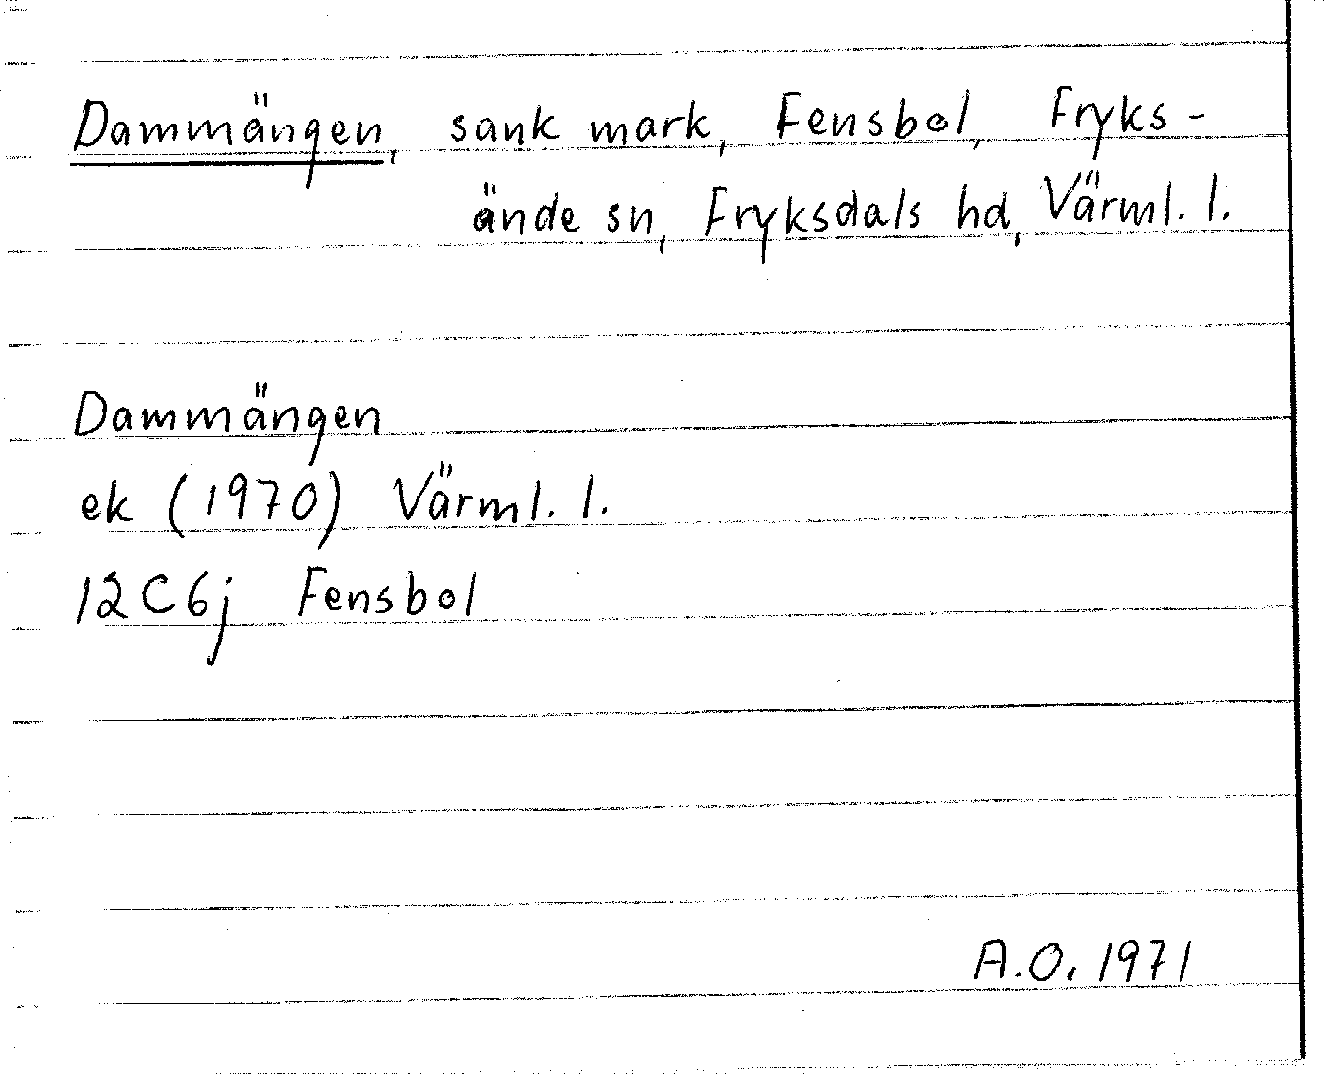 Dammängen, sank mark, Fensbol, Fryks-
ände sn, Fryksdals hd, Värml. l.
Dammängen
ek (1970) Värml. l.
12C6j Fensbol
A.O. 1971